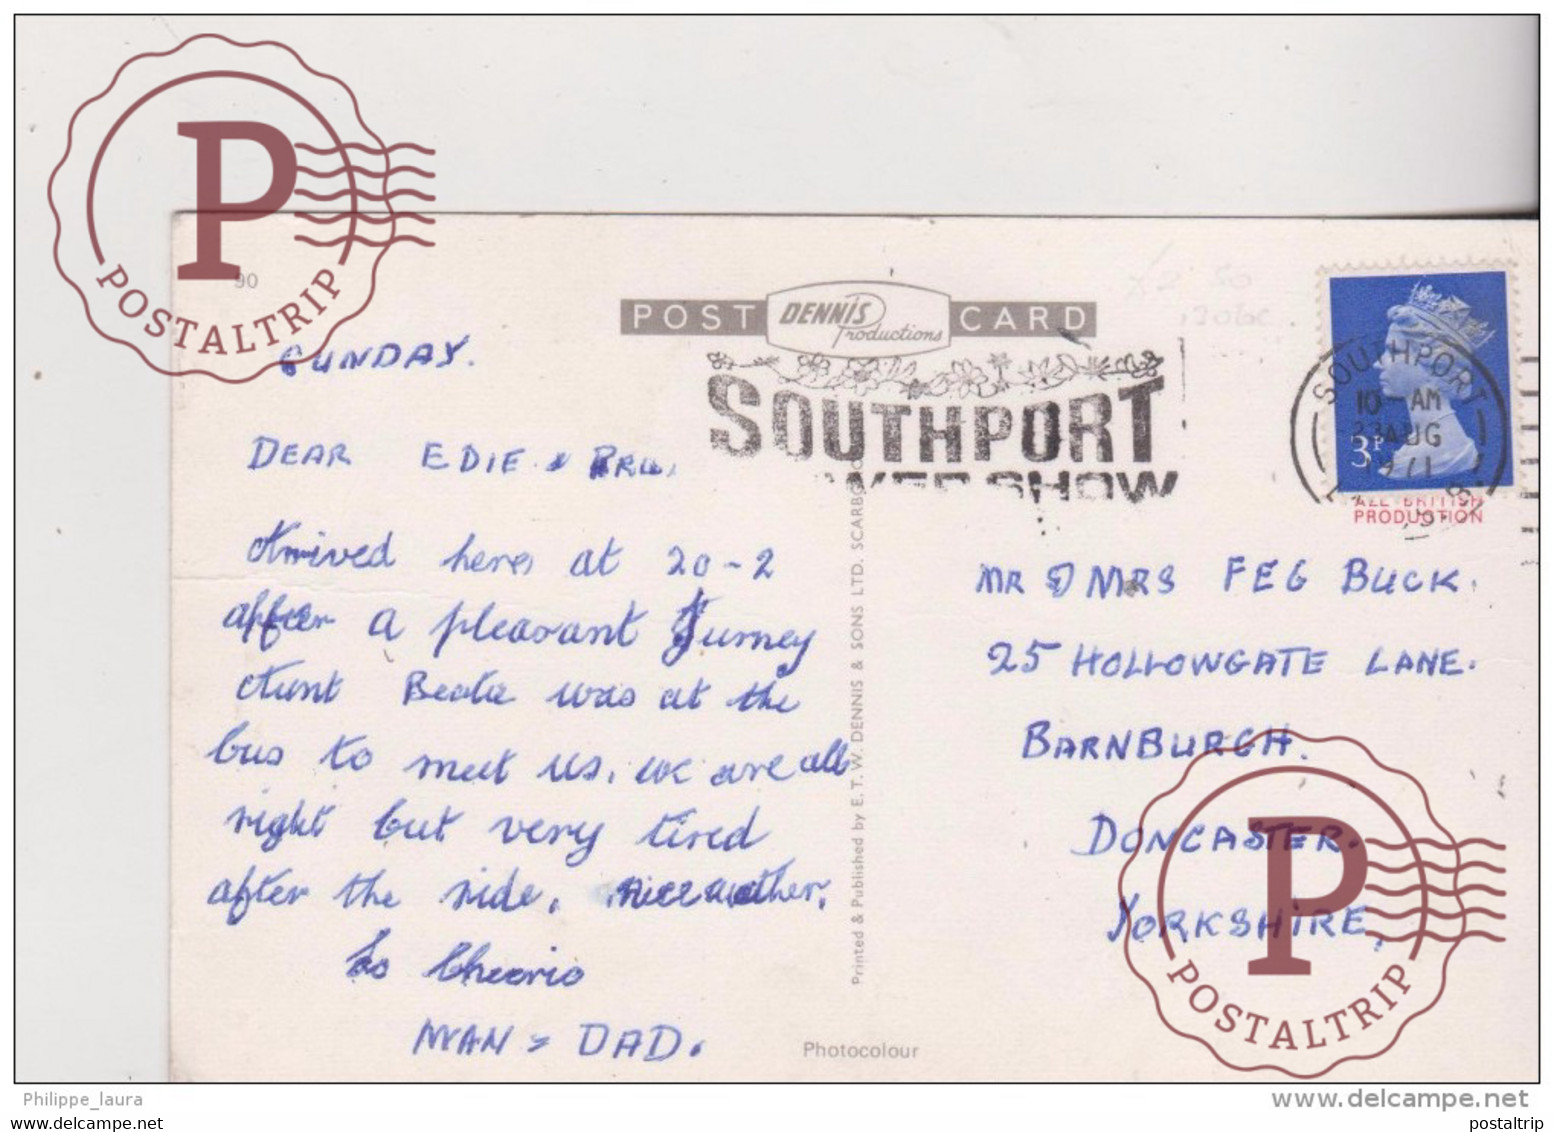 P
POSTALTRIP
90
POST DENNIS Productions CARD
SOUTHPORT
SHOW
SOUTHPORT
10-AM
AUG
1971
3P
ALL BRITISH
PRODUCTION
SUNDAY.
DEAR EDIE &
Arrived here at 20-2
after a pleasant Jurney
Aunt Beata was at the
bus to meet us. we are all
right but very tired
after the ride. nice weather.
So Cheerio
NAN & DAD.
Printed & Published by E. T. W. DENNIS & SONS LTD. SCARBORO
Photocolour
MR & MRS FEG BUCK.
25 HOLLOWGATE LANE.
BARNBURGH.
DONCASTER.
YORKSHIRE,
P
POSTALTRIP
Philippe_laura
www.delcampe.net
www.delcampe.net
postaltrip